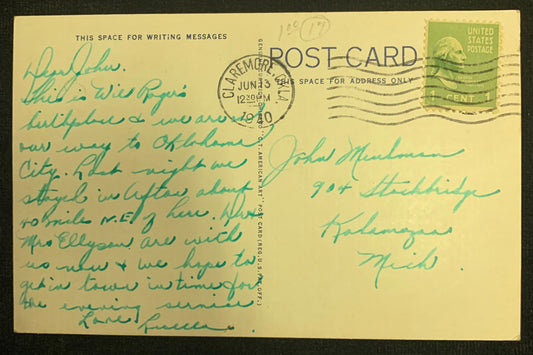 THIS SPACE FOR WRITING MESSAGES
Dear John.
This is Will Roger's
birthplace & we are on
our way to Oklahoma
City. Last night we
stayed in Afton about
40 miles N.E. of here. Dr &
Mrs Ellyson are with
us now & we hope to
get in town in time for
the evening service
Love
GENUINE CURTEICH-CHICAGO "C.T. AMERICAN ART" POST CARD (REG. U.S. PAT. OFF.)
1.00 17
POST CARD
THIS SPACE FOR ADDRESS ONLY
CLAREMORE, OKLA.
JUN 13
12 PM
1940
UNITED
STATES
POSTAGE
1 CENT 1
John
904 Stockbridge
Kalamazoo
Mich.